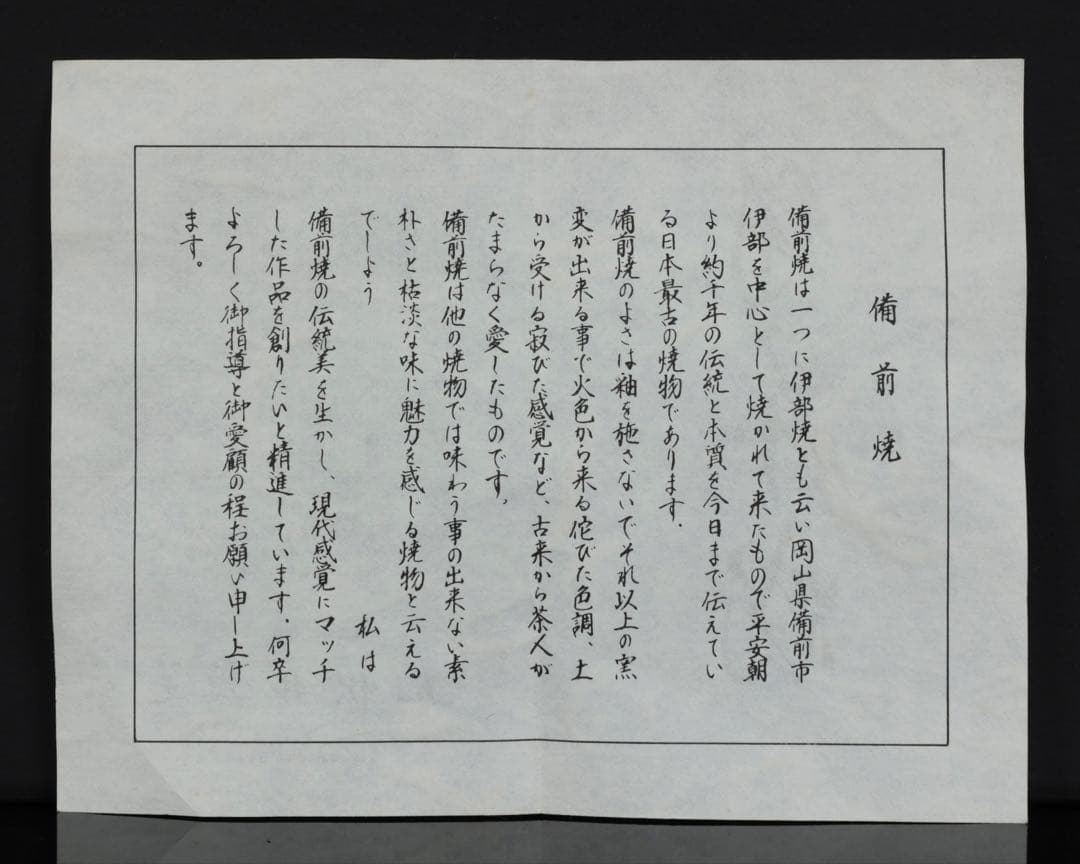 備前焼
備前焼は一つに伊部焼とも云い岡山県備前市
伊部を中心として焼かれて来たもので平安朝
より約千年の伝統と本質を今日まで伝えてい
る日本最古の焼物であります.
備前焼のよさは釉を施さないでそれ以上の窯
変が出来る事で火色から来る侘びた色調、土
から受ける寂びた感覚など、古来から茶人が
たまらなく愛したものです。
備前焼は他の焼物では味わう事の出来ない素
朴さと枯淡な味に魅力を感じる焼物と云える
でしよう 私は
備前焼の伝統美を生かし、現代感覚にマッチ
した作品を創りたいと精進しています.何卒
よろしく御指導と御愛顧の程お願い申し上げ
ます。